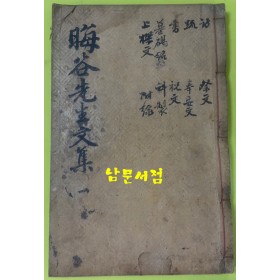 詩 祭文
疏 奉安文
書 祝文
墓碣
上樑文 附錄
晦谷先生文集 一
남문서점